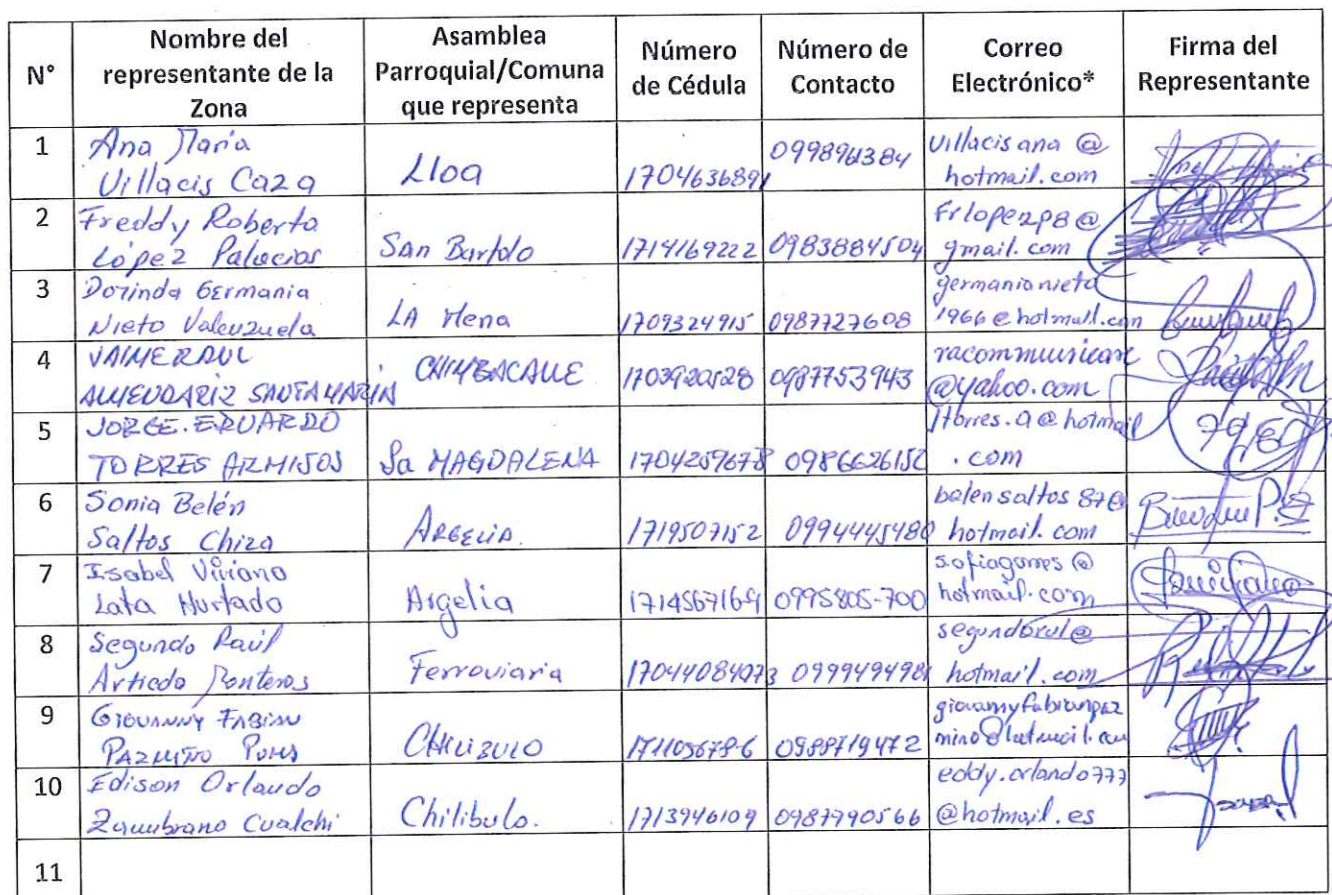 N°
Nombre del
representante de la
Zona
Asamblea
Parroquial/Comuna
que representa
Número
de Cédula
Número de
Contacto
Correo
Electrónico*
Firma del
Representante
1
Ana María
Villacis Caza
Lloa
1704636891
0998961384
villacisana @
hotmail.com
2
Freddy Roberto
López Palacios
San Bartolo
1714169222
0983884504
Frlopezp8@
gmail.com
3
Dorinda Germania
Nieto Valenzuela
LA Mena
1709324915
0987727608
germanianieto
1966@hotmail.com
4
JAIME RAUL
ALMENDARIZ SANTAMARIA
CHIMBACALLE
1703920528
0987753943
@yahoo.com
5
JORGE. EDUARDO
TORRES ARMIJOS
La MAGDALENA
1704259678
0986626152
Jtorres.a@hotmail
.com
6
Sonia Belén
Saltos Chiza
ARGELIA.
1719507152
0994445480
belensaltos87@
hotmail.com
7
Isabel Viviana
Lata Hurtado
Argelia
1714567169
0995805-700
hotmail.com
8
Segundo Raúl
Ferroviaria
17044084073
0999494981
segundorul@
hotmail.com
9
GIOVANNY FABIAN
PAZMIÑO
CHILIBULO
171105678-6
0988719472
giovannyfabianpaz
mino@hotmail.com
10
Edison Orlando
Zambrano Cualchi
Chilibulo.
1713946109
0987790566
eddy.orlando777
@hotmail.es
11